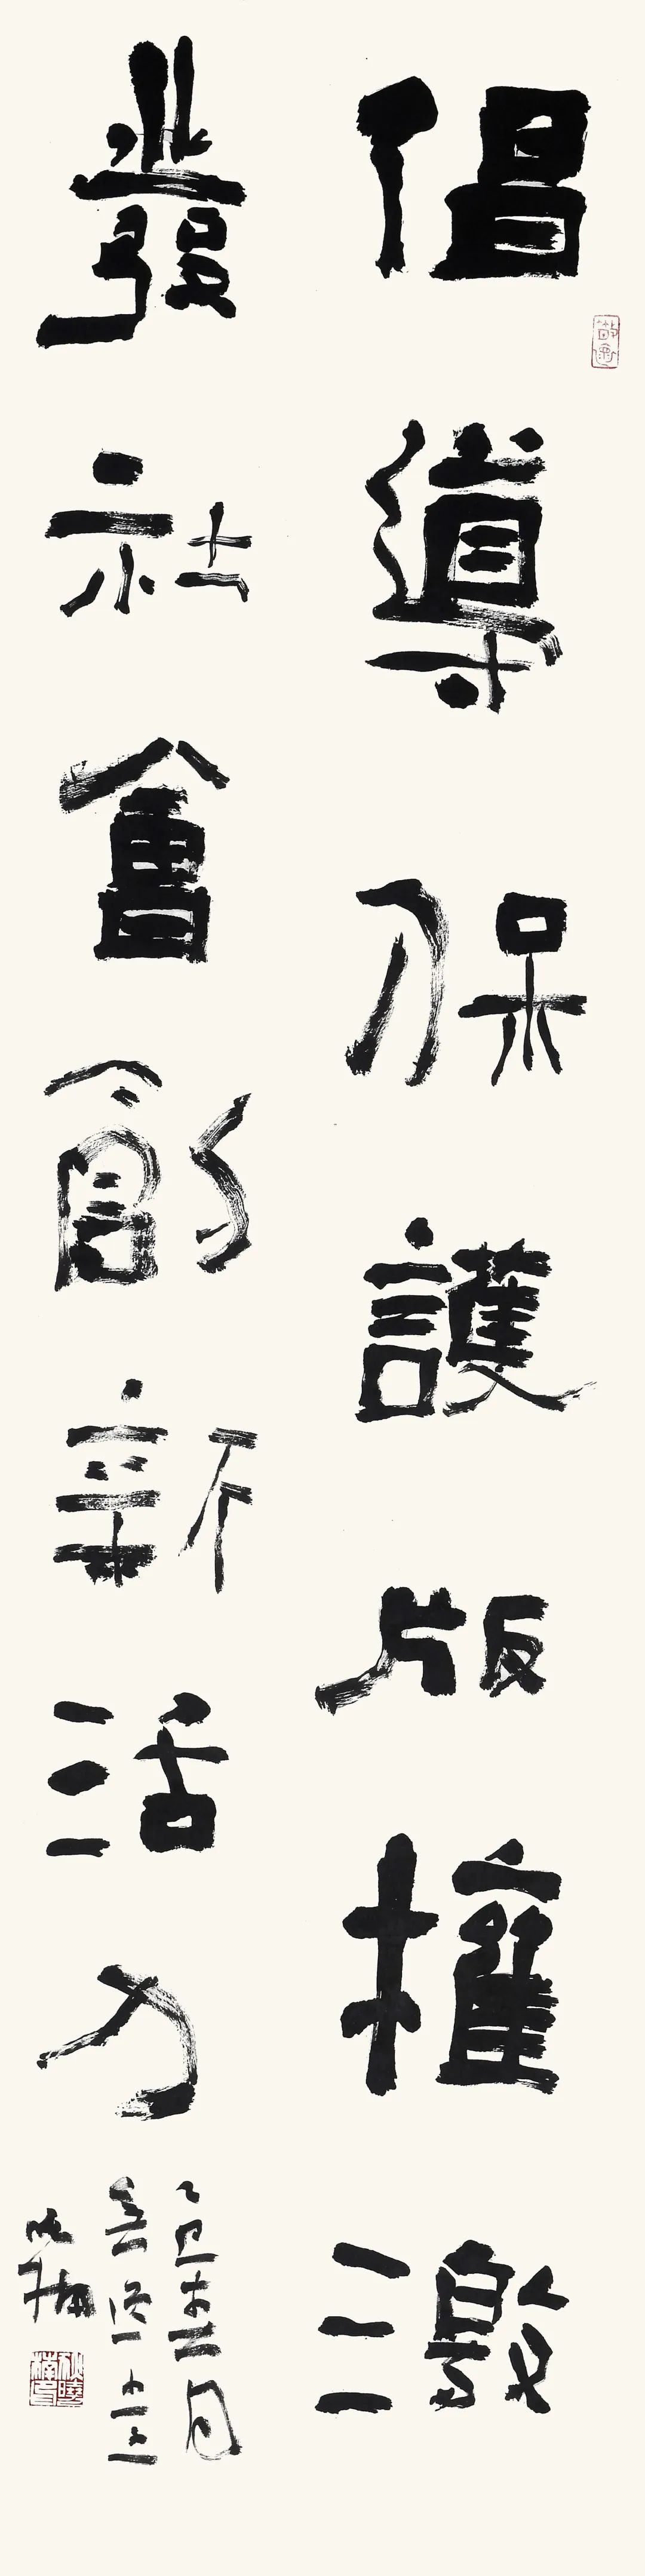 倡導保護版權激
發社會創新活力
乙巳春月